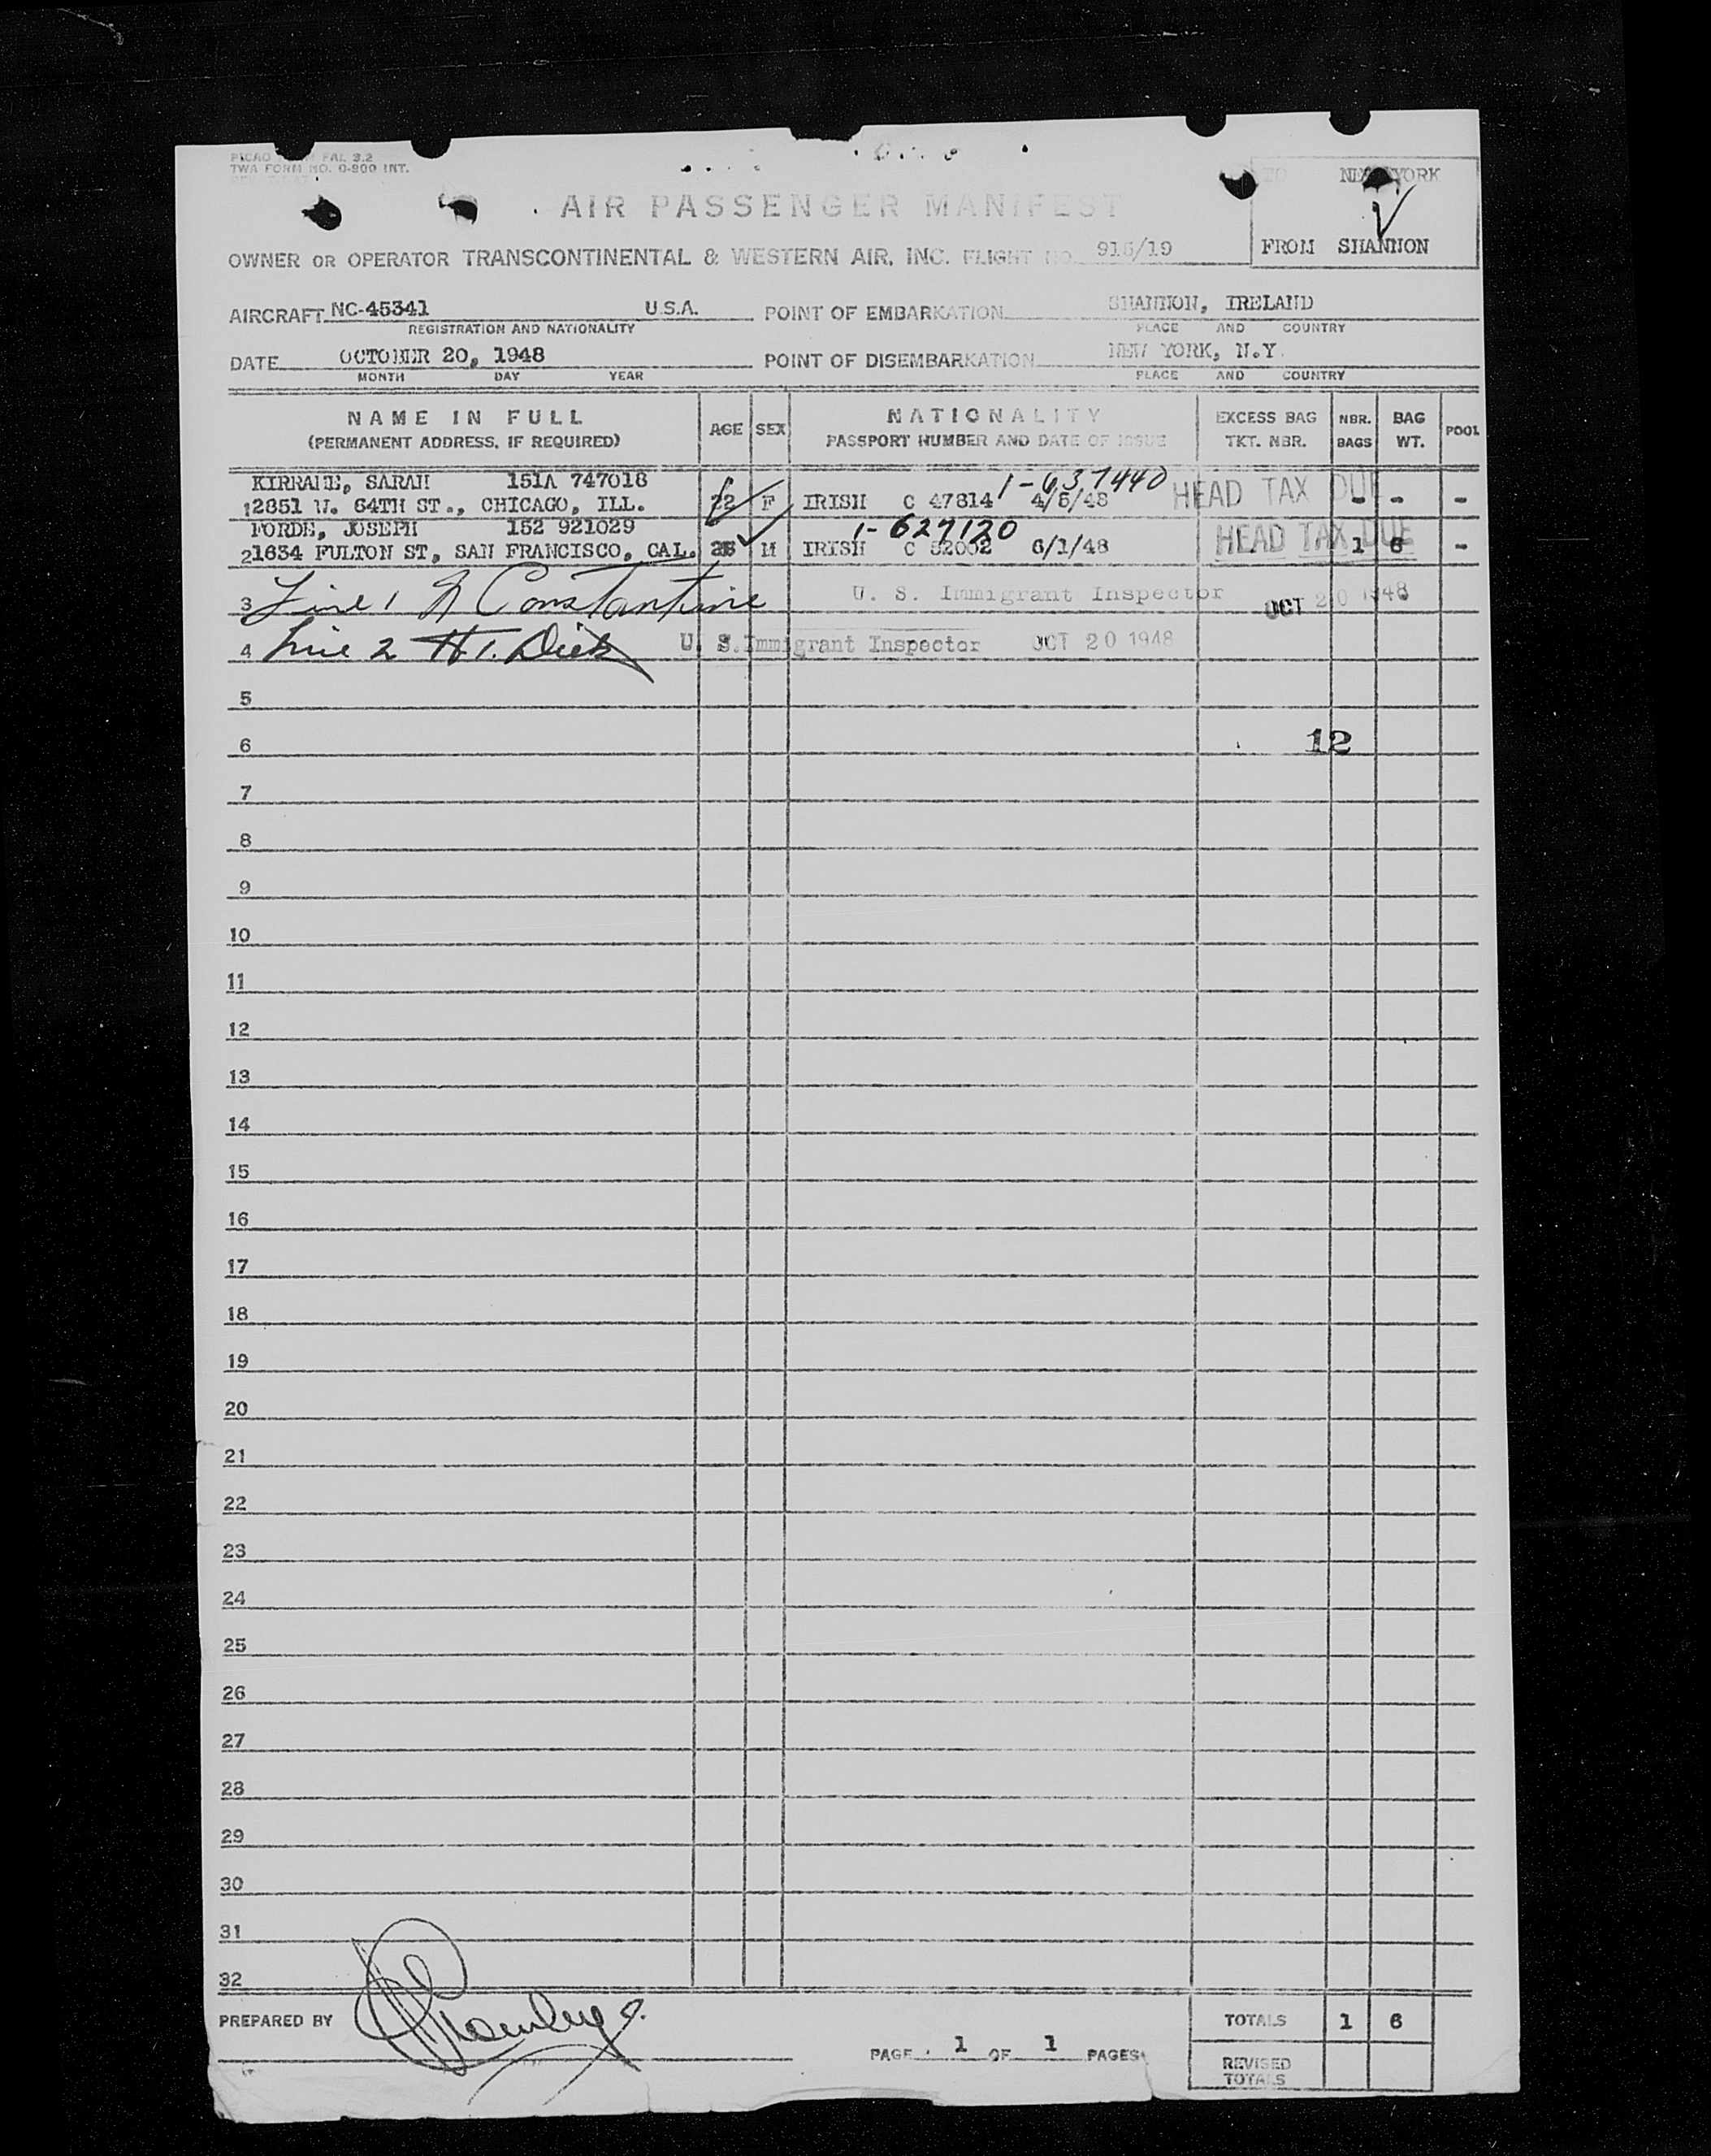 PICAO FAL 3.2
TWA FORM NO. 0-800 INT.
AIR PASSENGER MANIFEST
TO NEW YORK
FROM SHANNON
OWNER OR OPERATOR TRANSCONTINENTAL & WESTERN AIR, INC. FLIGHT NO. 915/19
AIRCRAFT NC-45341 U.S.A. POINT OF EMBARKATION SHANNON, IRELAND
REGISTRATION AND NATIONALITY PLACE AND COUNTRY
DATE OCTOBER 20, 1948 POINT OF DISEMBARKATION NEW YORK, N.Y.
MONTH DAY YEAR PLACE AND COUNTRY
NAME IN FULL AGE SEX NATIONALITY EXCESS BAG NBR. BAG POOL
(PERMANENT ADDRESS, IF REQUIRED) PASSPORT NUMBER AND DATE OF ISSUE TKT. NBR. BAGS WT.
KIRRANE, SARAH 151A 747018 1-637440
1 2851 W. 64TH ST., CHICAGO, ILL. 22 F IRISH C 47814 4/5/48 HEAD TAX DUE - - -
FORDE, JOSEPH 152 921029 1-627120
2 1634 FULTON ST, SAN FRANCISCO, CAL. M IRISH C 52002 6/1/48 HEAD TAX DUE 1 6 -
3 Line 1 Constantine U. S. Immigrant Inspector OCT 20 1948
4 Line 2 H. T. Dick U. S. Immigrant Inspector OCT 20 1948
5
6 12
7
8
9
10
11
12
13
14
15
16
17
18
19
20
21
22
23
24
25
26
27
28
29
30
31
32
PREPARED BY
TOTALS 1 6
PAGE 1 OF 1 PAGES
REVISED
TOTALS